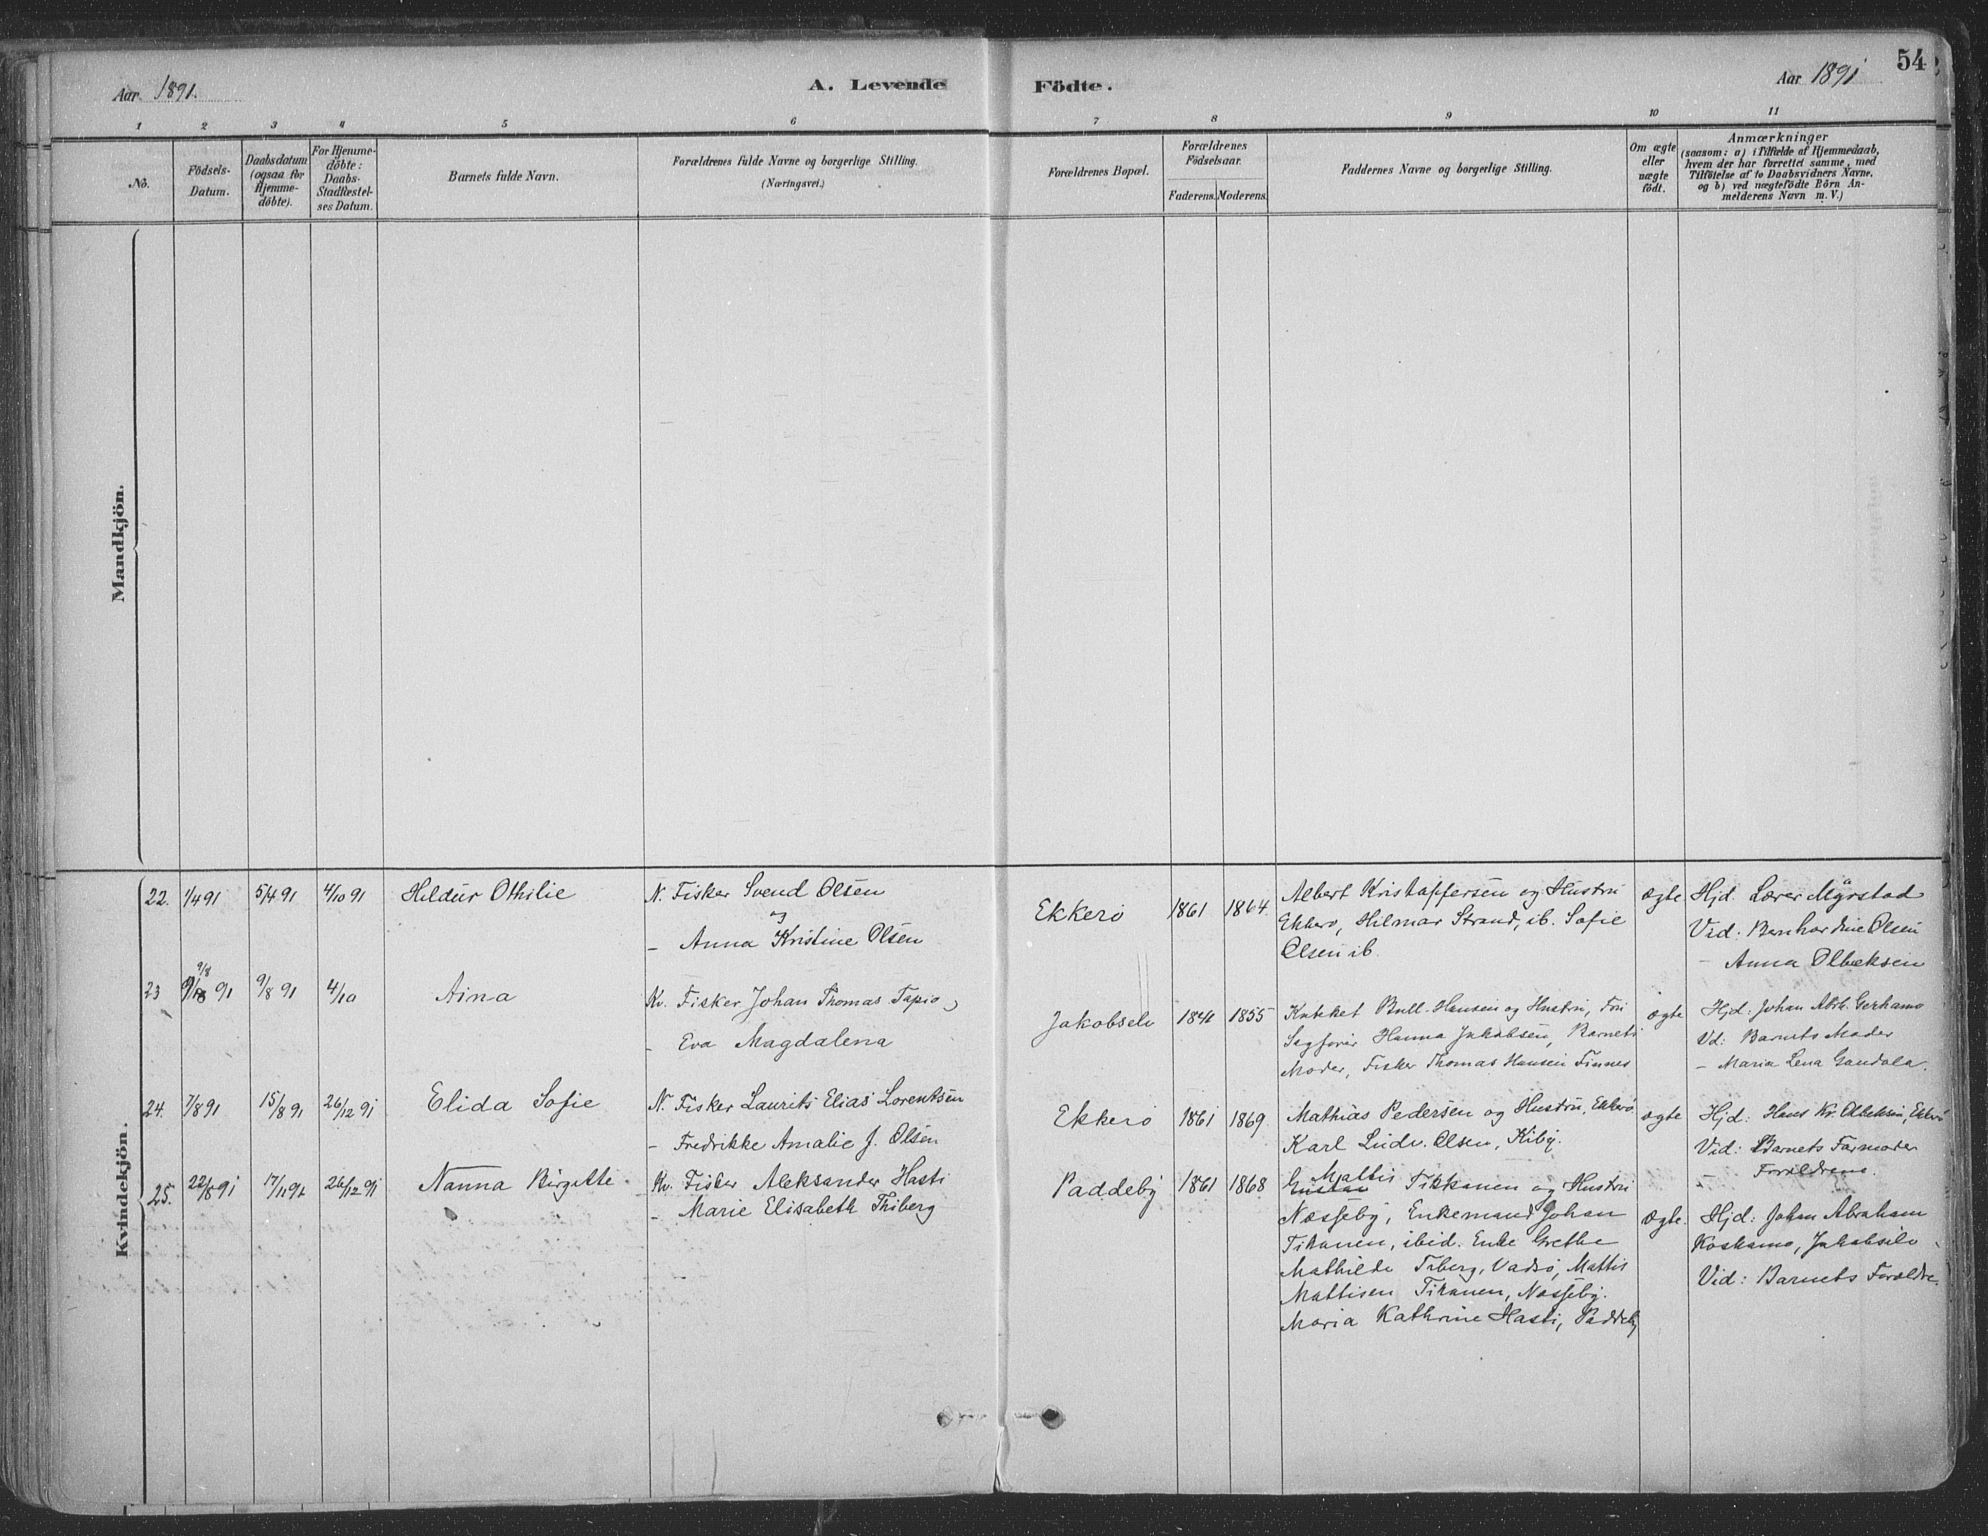 54
Aar 1891.
A. Levende Födte.
Aar 1891
1 2 3 4 5 6 7 8 9 10 11
No.
Födsels-
Datum.
Daabsdatum
(ogsaa for
Hjemme-
döbte).
For Hjemme-
döbte:
Daabs-
Stadfæstel-
ses Datum.
Barnets fulde Navn.
Forældrenes fulde Navne og borgerlige Stilling.
(Næringsvei.)
Forældrenes Bopæl.
Forældrenes
Födselsaar.
Faderens. Moderens.
Faddernes Navne og borgerlige Stilling.
Om ægte
eller
uægte
födt.
Anmærkninger
(saasom: a) i Tilfælde af Hjemmedaab,
hvem der har forrettet samme, med
Tilföielse af to Daabsvidners Navne,
og b) ved uægtefödte Börn An-
melderens Navn m. V.)
Mandkjön.
Kvindekjön.
22. 1/4 91 5/4 91 4/10 91 Hildur Othilie
N. Fisker Svend Olsen
og
– Anna Kristine Olsen
Ekkerö 1861 1864.
Albert Kristoffersen og Hustru
Ekkerö, Hilmar Strand, ib. Sofie
Olsen ib.
ægte
Hjd. Lærer Myrstad
Vid: Bernhardine Olsen
– Anna Olbeksen
23 9/8 91 9/8 91 4/10 Aina
Kv. Fisker Johan Thomas Tapio
– Eva Magdalena
Jakobselv 1841 1855
Kateket Bull-Hansen og Hustru,
Hanna Jakobsen, Barnets
Moder, Fisker Thomas Hansen
ægte
Hjd: Johan Abrh.
Vd: Barnets Moder
– Maria Lena
24. 7/8 91 15/8 91 26/12 91 Elida Sofie
N. Fisker Laurits Elias Lorentsen
– Fredrikke Amalie J. Olsen
Ekkerö 1861 1869
Mathias Pedersen og Hustru, Ekkerö,
Karl Ludv. Olsen, Kiby.
ægte
Hjd: Hans Kr. Olbeksen, Ekkerö
Vid: Barnets Farmoder
– Forældrene.
25. 22/8 91 17/11 91 26/12 91 Nanna Birgitte
Kv. Fisker Aleksander Hasti
– Marie Elisabeth Thiberg
Paddeby 1861 1868
Mattis
Gustav Tikkanen og Hustru
Næsseby, Enkemand Johan
Tikanen, ibid. Enke Grethe
Mathilde Tiberg, Vadsö, Mattis
Mattisen Tikanen, Næsseby.
Maria Kathrine Hasti, Paddeby
Ægte.
Hjd: Johan Abraham
Koskamo, Jakobselv
Vid: Barnets Forældre.